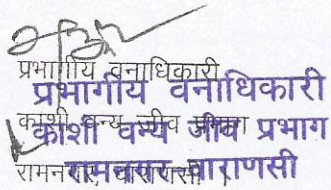 प्रभागीय वनाधिकारी
प्रभागीय वनाधिकारी
काशी वन्य जीव प्रभाग
काशी वन्य जीव प्रभाग
रामनगर, वाराणसी ।
रामनगर वाराणसी